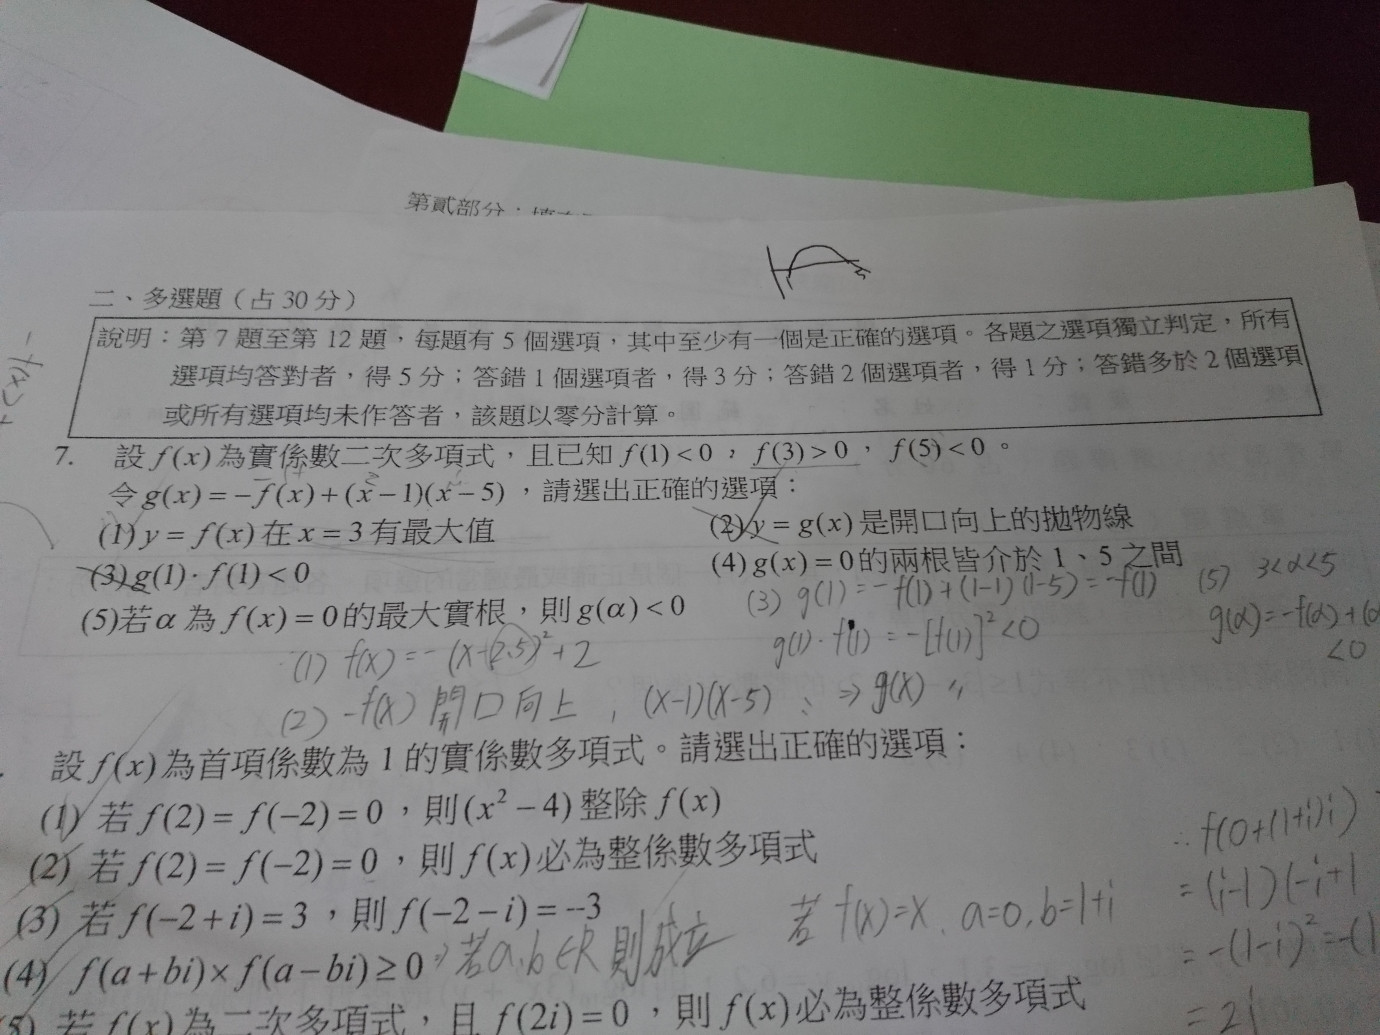 第貳部分：
二、多選題（占 30 分）
說明：第 7 題至第 12 題，每題有 5 個選項，其中至少有一個是正確的選項。各題之選項獨立判定，所有
選項均答對者，得 5 分；答錯 1 個選項者，得 3 分；答錯 2 個選項者，得 1 分；答錯多於 2 個選項
或所有選項均未作答者，該題以零分計算。
7. 設 f(x) 為實係數二次多項式，且已知 f(1)<0，f(3)>0，f(5)<0。
令 g(x)=-f(x)+(x-1)(x-5)，請選出正確的選項：
(1) y=f(x) 在 x=3 有最大值
(2) y=g(x) 是開口向上的拋物線
(3) g(1)·f(1)<0
(4) g(x)=0 的兩根皆介於 1、5 之間
(5)若 α 為 f(x)=0 的最大實根，則 g(α)<0
(3) g(1)=-f(1)+(1-1)(1-5)=-f(1)
g(1)·f(1)=-[f(1)]²<0
(5) 3<α<5
g(α)=-f(α)+(α
<0
(1) f(x)=-(x-(2.5))²+2
(2) -f(x) 開口向上，(x-1)(x-5) ⇒ g(x)
設 f(x) 為首項係數為 1 的實係數多項式。請選出正確的選項：
(1) 若 f(2)=f(-2)=0，則 (x²-4) 整除 f(x)
(2) 若 f(2)=f(-2)=0，則 f(x) 必為整係數多項式
(3) 若 f(-2+i)=3，則 f(-2-i)=-3
(4) f(a+bi)×f(a-bi)≥0
若 a,b∈R 則成立
若 f(x)=x, a=0, b=1+i
∴ f(0+(1+i)i)
=(i-1)(-i+1
=-(1-i)²=-(1
=2i
(5) 若 f(x) 為二次多項式，且 f(2i)=0，則 f(x) 必為整係數多項式